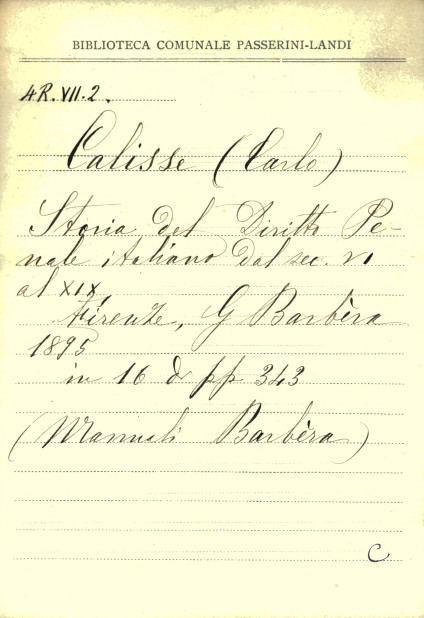 BIBLIOTECA COMUNALE PASSERINI-LANDI
4R.VII.2.
Calisse (Carlo)
Storia del Diritto Pe-
nale italiano dal sec. VI
al XIX,
Firenze, G Barbèra
1895
in 16 di pp 343
(Manuali Barbèra)
C